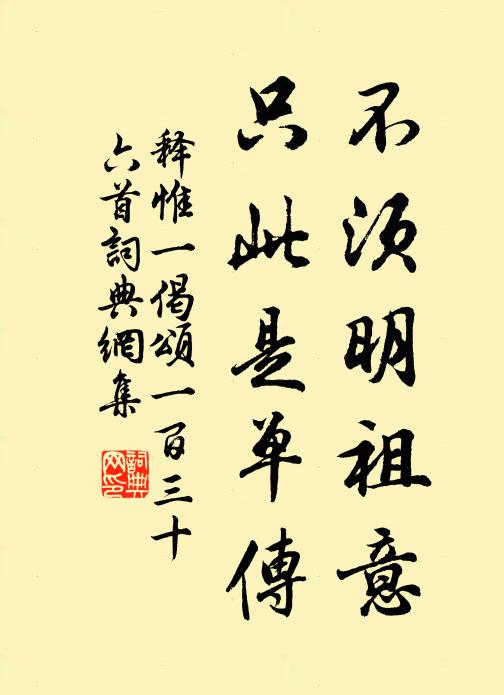 不须明祖意
只此是单傳
释惟一偈頌一百三十
六首詞典網集
詞典网印